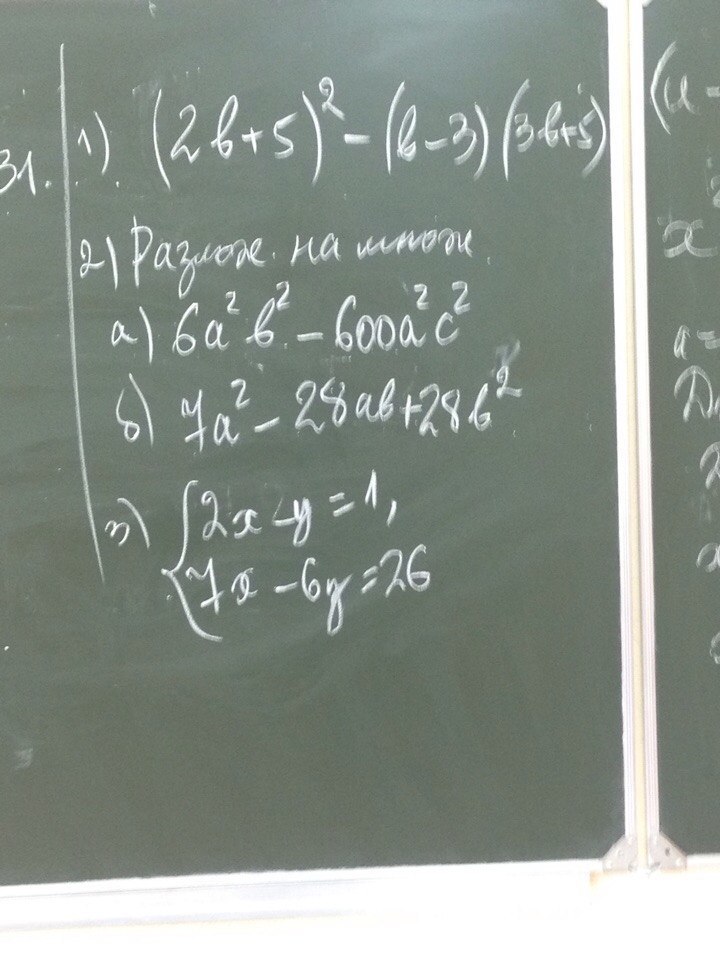 31. 1) (2b+5)² - (b-3)(3b+5)
2) Разлож. на множ.
а) 6a²b² - 600a²c²
б) 7a² - 28ab + 28b²
3) { 2x - y = 1,
7x - 6y = 26
(a -
x
a =